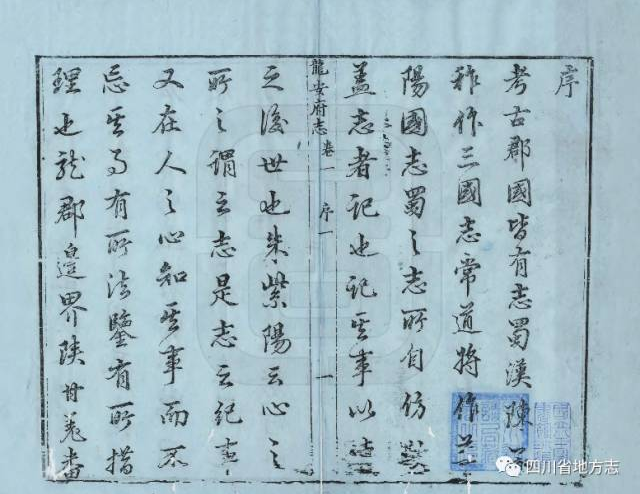 序
考古郡國皆有志蜀漢陳
稚作三國志常道將作華
陽國志蜀之志所自仿
蓋志者記也記其事以
龍安府志 卷一 序 一
之後世也朱紫陽云心之
所之謂之志是志之紀事
又在人之心知其事而不
忘其事有所法鑒有所措
理也龍郡邊界陝甘羌番
四川省地方志